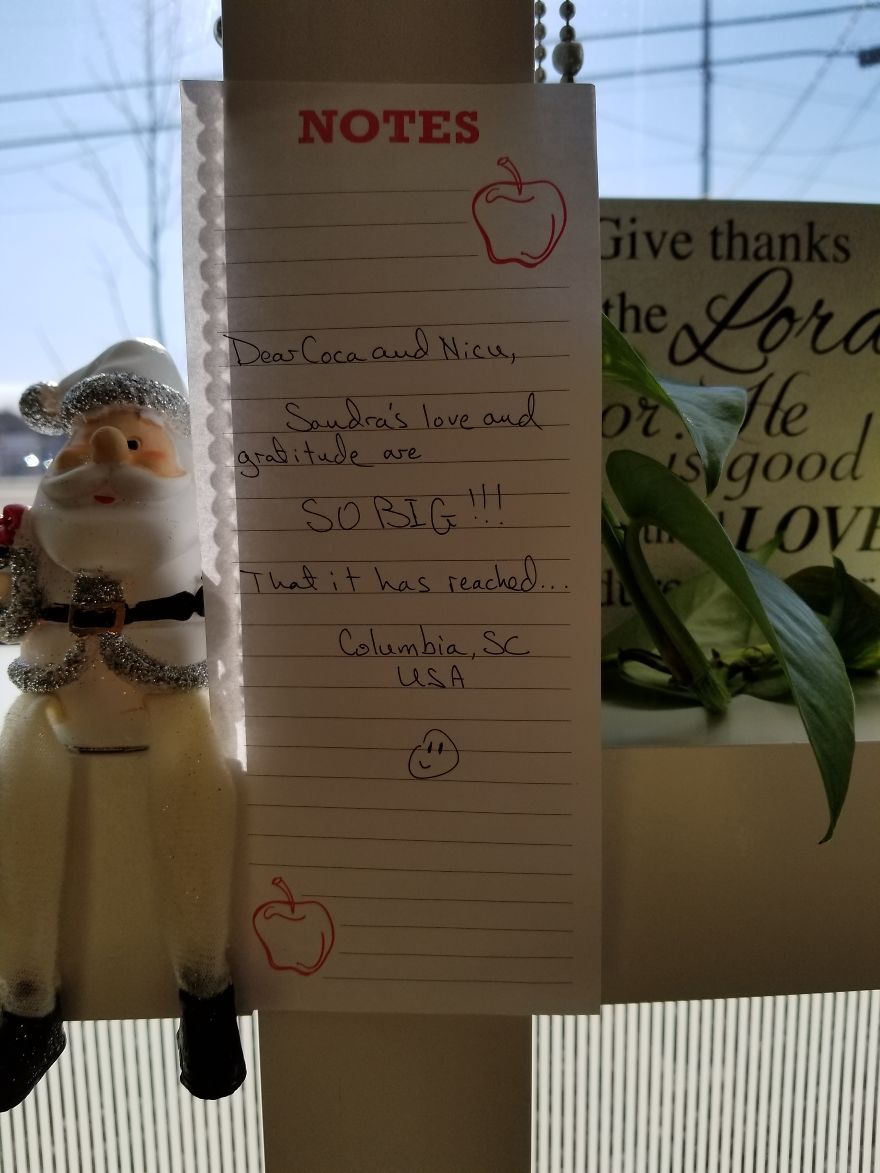 NOTES
Dear Coca and Nicu,
Sandra's love and
gratitude are
SO BIG!!!
That it has reached...
Columbia, SC
USA
Give thanks
the Lord
or He
is good
LOVE